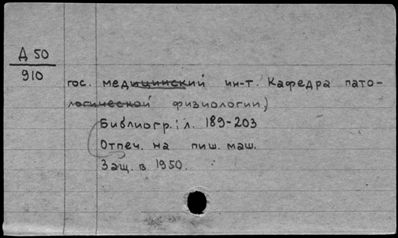 Д 50
910
гос. медицинский ин-т. Кафедра пато-
логической физиологии)
Библиогр.: л. 189-203
Отпеч. на пиш. маш.
Защ. в 1950.